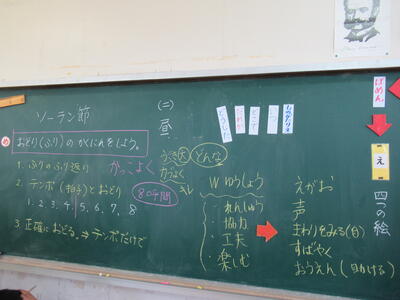 ソーラン節
め
おどり(ふり)の かくにんをしよう。
1. ふりのふり返り
かっこよく
2. テンポ(拍子)とおどり
1. 2. 3. 4. 5. 6. 7. 8
3. 正確におどる。→テンポだけで
(二)
昼
大
どんな
力づよく
キレ
W ゆうしょう
れんしゅう
協力
工夫
楽しむ
えがお
声
まわりをみる(目)
すばやく
おうえん(
どうした
だれが
どこで
いつ
ばめん
え
四つの絵